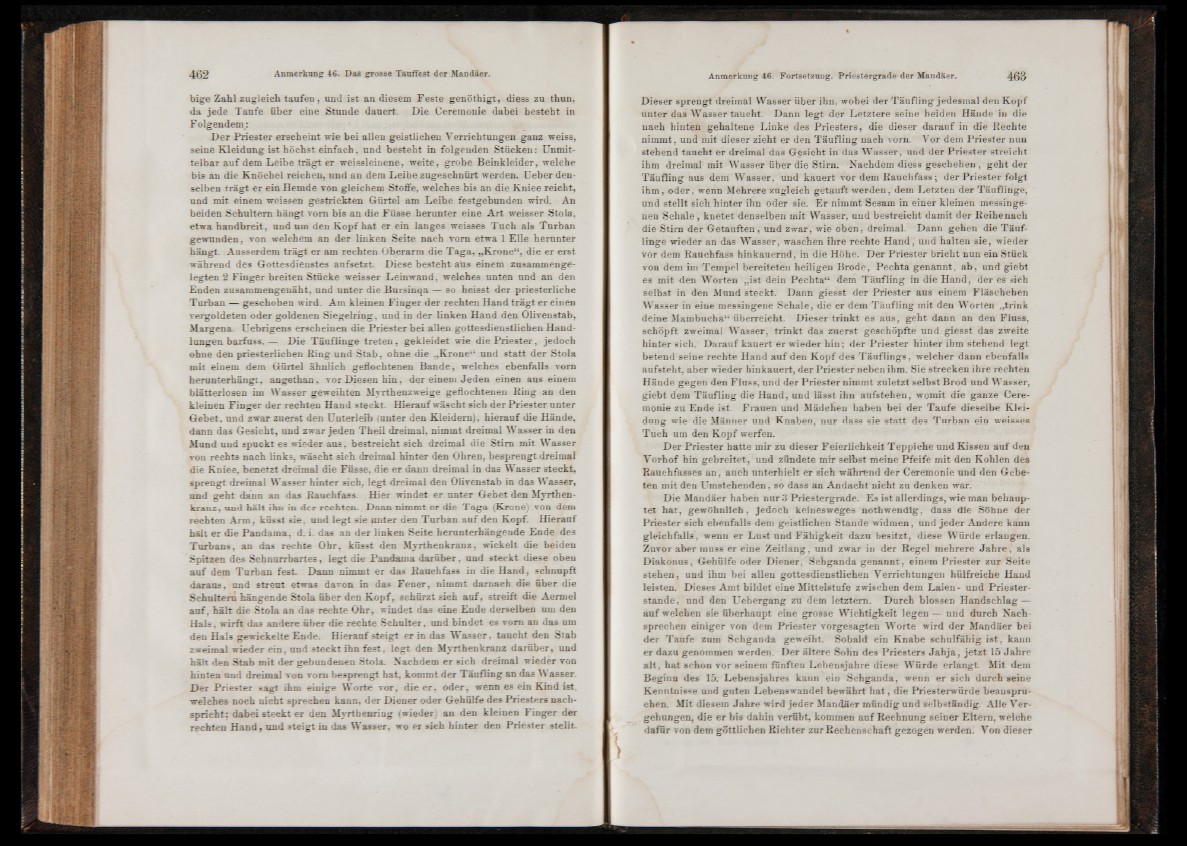 462
Anmerkung 46. Das grosse Tauffest der Mandäer.
bige Zahl zugleich taufen, und ist an diesem Feste genöthigt, diess zu thun,
da jede Taufe über eine Stunde dauert. Die Ceremonie dabei besteht in
Folgendem:
Der Priester erscheint wie bei allen geistlichen Verrichtungen ganz weiss,
seine Kleidung ist höchst einfach, und besteht in folgenden Stücken: Unmit-
telbar auf dem Leibe trägt er weissleinene, weite, grobe Beinkleider, welche
bis an die Knöchel reichen, und an dem Leibe zugeschnürt werden. Ueber den-
selben trägt er ein Hemde von gleichem Stoffe, welches bis an die Kniee reicht,
und mit einem weissen gestrickten Gürtel am Leibe festgebunden wird. An
beiden Schultern hängt vorn bis an die Füsse herunter eine Art weisser Stola,
etwa handbreit, und um den Kopf hat er ein langes weisses Tuch als Turban
gewunden, von welchem an der linken Seite nach vorn etwa 1 Elle herunter
hängt. Ausserdem trägt er am rechten Oberarm die Taga, „Krone“, die er erst
während des Gottesdienstes aufsetzt. Diese besteht aus einem zusammenge-
legten 2 Finger breiten Stücke weisser Leinwand, welches unten und an den
Enden zusammengenäht, und unter die Bursinqa — so heisst der priesterliche
Turban — geschoben wird. Am kleinen Finger der rechten Hand trägt er einen
vergoldeten oder goldenen Siegelring, und in der linken Hand den Olivenstab,
Margena. Uebrigens erscheinen die Priester bei allen gottesdienstlichen Hand-
lungen barfuss. — Die Täuflinge treten, gekleidet wie die Priester, jedoch
ohne den priesterlichen Ring und Stab, ohne die „Krone“ und statt der Stola
mit einem dem Gürtel ähnlich geflochtenen Bande, welches ebenfalls vorn
herunterhängt, angethan, vor Diesen hin, der einem Jeden einen aus einem
blätterlosen im Wasser geweihten Myrthenzweige geflochtenen Ring an den
kleinen Finger der rechten Hand steckt. Hierauf wäscht sich der Priester unter
Gebet, und zwar zuerst den Unterleib (unter den Kleidern), hierauf die Hände,
dann das Gesicht, und zwar jeden Theil dreimal, nimmt dreimal Wasser in den
Mund und spuckt es wieder aus, bestreicht sich dreimal die Stirn mit Wasser
von rechts nach links, wäscht sich dreimal hinter den Ohren, besprengt dreimal
die Kniee, benetzt dreimal die Füsse, die er dann dreimal in das Wasser steckt,
sprengt dreimal Wasser hinter sich, legt dreimal den Olivenstab in das Wasser,
und geht dann an das Rauchfass. Hier windet er unter Gebet den Myrthen-
kranz, und hält ihn in der rechten. Dann nimmt er die Taga (Krone) von dem
rechten Arm, küsst sie, und legt sie unter den Turban auf den Kopf. Hierauf
hält er die Pandama, d. i. das an der linken Seite herunterhängende Ende des
Turbans, an das rechte Ohr, küsst den Myrthenkranz, wickelt die beiden
Spitzen des Schnurrbartes, legt die Pandama darüber, und steckt diese oben
auf dem Turban fest. Dann nimmt er das Rauchfass in die Hand, schnupft
daraus, und streut etwas davon in das Feuer, nimmt darnach die über die
Schultern hängende Stola über den Kopf, schürzt sich auf, streift die Aermel
auf, hält die Stola an das rechte Ohr, windet das eine Ende derselben um den
Hals, wirft das andere über die rechte Schulter, und bindet es vorn an das um
den Hals gewickelte Ende. Hierauf steigt er in das Wasser, taucht den Stab
zweimal wieder ein, und steckt ihn fest, legt den Myrthenkranz darüber, und
hält den Stab mit der gebundenen Stola. Nachdem er sich dreimal wieder von
hinten und dreimal von vorn besprengt hat, kommt der Täufling an das Wasser.
Der Priester sagt ihm einige Worte vor, die er, oder, wenn es ein Kind ist,
welches noch nicht sprechen kann, der Diener oder Gehülfe des Priesters nach-
spricht; dabei steckt er den Myrthenring (wieder) an den kleinen Finger der
rechten Hand, und steigt in das Wasser, wo er sich hinter den Priester stellt.
Anmerkung 46. Fortsetzung. Priestergrade der Mandäer.
463
Dieser sprengt dreimal Wasser über ihn, wobei der Täufling jedesmal den Kopf
unter das Wasser taucht. Dann legt der Letztere seine beiden Hände in die
nach hinten gehaltene Linke des Priesters, die dieser darauf in die Rechte
nimmt, und mit dieser zieht er den Täufling nach vorn. Vor dem Priester nun
stehend taucht er dreimal das Gesicht in das Wasser, und der Priester streicht
ihm dreimal mit Wasser über die Stirn. Nachdem diess geschehen, geht der
Täufling aus dem Wasser, und kauert vor dem Rauchfass; der Priester folgt
ihm, oder, wenn Mehrere zugleich getauft werden, dem Letzten der Täuflinge,
und stellt sich hinter ihn oder sie. Er nimmt Sesam in einer kleinen messinge-
nen Schale, knetet denselben mit Wasser, und bestreicht damit der Reihe nach
die Stirn der Getauften, und zwar, wie oben, dreimal. Dann gehen die Täuf-
linge wieder an das Wasser, waschen ihre rechte Hand, und halten sie, wieder
vor dem Rauchfass hinkauernd, in die Höhe. Der Priester bricht nun ein Stück
von dem im Tempel bereiteten heiligen Brode, Pechta genannt, ab, und giebt
es mit den Worten „ist dein Pechta“ dem Täufling in die Hand, der es sich
selbst in den Mund steckt. Dann giesst der Priester aus einem Fläschchen
Wasser in eine messingene Schale, die er dem Täufling mit den Worten „trink
deine Mambucha“ überreicht. Dieser trinkt es aus, geht dann an den Fluss,
schöpft zweimal Wasser, trinkt das zuerst geschöpfte und giesst das zweite
hinter sich. Darauf kauert er wieder hin; der Priester hinter ihm stehend legt
betend seine rechte Hand auf den Kopf des Täuflings, welcher dann ebenfalls
aufsteht, aber wieder hinkauert, der Priester neben ihm. Sie strecken ihre rechten
Hände gegen den Fluss, und der Priester nimmt zuletzt selbst Brod und Wasser,
giebt dem Täufling die Hand, und lässt ihn aufstehen, womit die ganze Cere-
monie zu Ende ist. Frauen und Mädchen haben bei der Taufe dieselbe Klei-
dung wie die Männer und Knaben, nur dass sie statt des Turban ein weisses
Tuch um den Kopf werfen.
Der Priester hatte mir zu dieser Feierlichkeit Teppiche und Kissen auf den
Vorhof hin gebreitet, und zündete mir selbst meine Pfeife mit den Kohlen des
Rauchfasses an, auch unterhielt er sich während der Ceremonie und den Gebe-
ten mit den Umstehenden, so dass an Andacht nicht zu denken war.
Die Mandäer haben nur 3 Priestergrade. Es ist allerdings, wie man behaup-
tet hat, gewöhnlich, jedoch keinesweges nothwendig, dass die Söhne der
Priester sich ebenfalls dem geistlichen Stande widmen, und jeder Andere kann
gleichfalls, wenn er Lust und Fähigkeit dazu besitzt, diese Würde erlangen.
Zuvor aber muss er eine Zeitlang, und zwar in der Regel mehrere Jahre, als
Diakonus, Gehülfe oder Diener, Schganda genannt, einem Priester zur Seite
stehen, und ihm bei allen gottesdienstlichen Verrichtungen hülfreiche Hand
leisten. Dieses Amt bildet eine Mittelstufe zwischen dem Laien- und Priester-
stande, und den Uebergang zu dem letztern. Durch blossen Handschlag —
auf welchen sie überhaupt eine grosse Wichtigkeit legen — und durch Nach-
sprechen einiger von dem Priester vorgesagten Worte wird der Mandäer bei
der Taufe zum Schganda geweiht. Sobald ein Knabe schulfähig ist, kann
er dazu genommen werden. Der ältere Sohn des Priesters Jahja, jetzt 15 Jahre
alt, hat schon vor seinem fünften Lebensjahre diese Würde erlangt. Mit dem
Beginn des 15. Lebensjahres kann ein Schganda, wenn er sich durch seine
Kenntnisse und guten Lebenswandel bewährt hat, die Priesterwürde beanspru-
chen. Mit diesem Jahre wird jeder Mandäer mündig und selbständig. Alle Ver-
gehungen, die er bis dahin verübt, kommen auf Rechnung seiner Eltern, welche
dafür von dem göttlichen Richter zur Rechenschaft gezogen werden. Von dieser